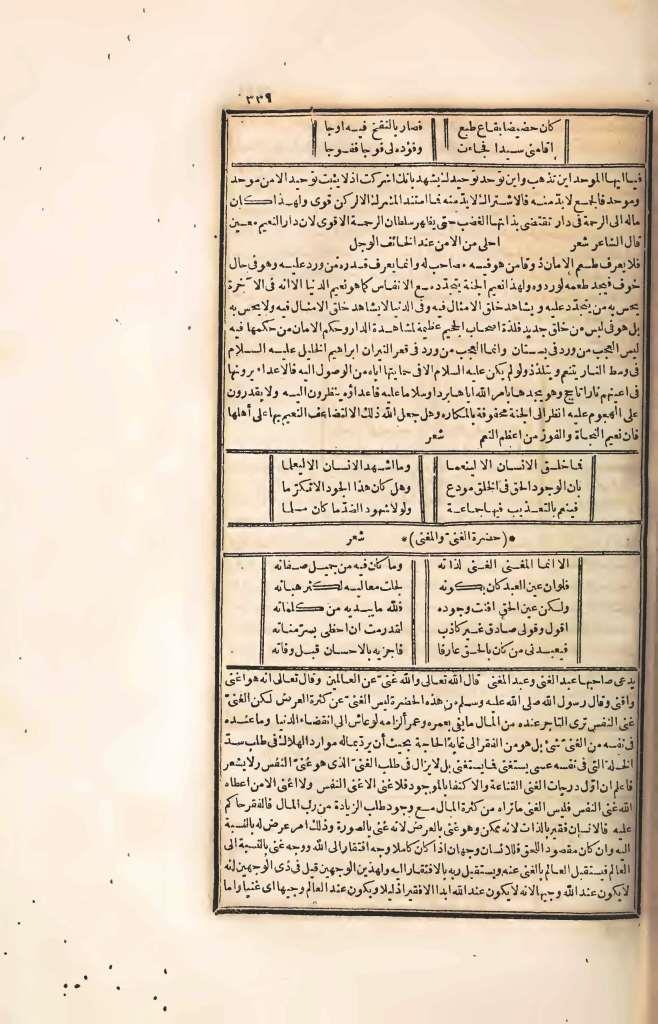 ٣٣٩
كان حضيضا بقاع طبع فصار بالنفخ فيه اوجا
اقامنى سيدا فجاءت وفوده لى فوجا ففوجا
فيا ايها الموحد اين تذهب واين توحد توحيدك يشهد بانك اشركت اذ لا يثبت توحيد الا من موحد
وموحد فالجمع لا بد منه فالاشتراك لا بد منه فما استند المشرك الا لركن قوى ولهذا كان
مآله الى الرحمة فى دار تقتضى بذاتها الغضب حتى يظهر سلطان الرحمة الاقوى لان دار النعيم معين
قال الشاعر شعر احلى من الامن عند الخائف الوجل
فلا يعرف طعم الامان ذوقا من هو فيه مصاحب له وانما يعرف قدره من ورد عليه وهو فى حال
خوف فيجد طعمه لوروده ولهذا نعيم الجنة يتجدد مع الانفاس كما هو نعيم الدنيا الا انه فى الآخرة
يحس به من يتجدد عليه ويشاهد خلق الامثال فيه وفى الدنيا لا يشاهد خلق الامثال فيه ولا يحس به
بل هو فى لبس من خلق جديد فلذة اصحاب الجحيم عظيمة لمشاهدة الدار وحكم الامان من حكمها فيه
ليس العجب من ورد فى بستان وانما العجب من ورد فى قعر النيران ابراهيم الخليل عليه السلام
فى وسط النار يتنعم ويتلذذ ولو لم يكن عليه السلام الا فى حمايتها اياه من الوصول اليه فالاعداء يرونها
فى اعينهم نارا تأجج وهو يجدها بامر الله اياها بردا وسلاما عليه فاعداؤه ينظرون اليه ولا يقدرون
على الهجوم عليه انظر الى الجنة محفوفة بالمكاره وهل جعل الله ذلك الا لتضاعف النعيم بها على أهلها
فان نعيم النجاة والفوز من اعظم النعم شعر
فما خلق الانسان الا لينعما وما اشهد الانسان الا ليعلما
بان الوجود الحق فى الخلق مودع وهل كان هذا الجود الا تكرما
فينعم بالتعذيب فيها جماعة ولولا شهود الضد ما كان مسلما
*(حضرة الغنى والمغنى)* شعر
الا انما المغنى الغنى لذاته وما كان فيه من جميل صفاته
فلو ان عين العبد كان بكونه لجلت معاليه لكثر هباته
ولكن عين الحق افنت وجوده فلله ما يبديه من كلماته
اقول وقولى صادق غير كاذب لقد رمت ان احظى بسر مناته
فيعبدنى من كان بالحق عارفا فاجزيه بالاحسان قبل وفاته
يدعى صاحبها عبد الغنى وعبد المغنى قال الله تعالى والله غنى عن العالمين وقال تعالى انه هو اغنى
واقنى وقال رسول الله صلى الله عليه وسلم من هذه الحضرة ليس الغنى عن كثرة العرض لكن الغنى
غنى النفس ترى التاجر عنده من المال ما يفى بعمره وعمر ألزامه لو عاش الى انقضاء الدنيا وما عنده
فى نفسه من الغنى شئ بل هو من الفقر الى غاية الحاجة بحيث أن يرد بماله موارد الهلاك فى طلب سد
الخلة التى فى نفسه عسى يستغنى فما يستغنى بل لا يزال فى طلب الغنى الذى هو غنى النفس ولا يشعر
فاعلم ان اول درجات الغنى القناعة والاكتفا بالموجود فلا غنى الا غنى النفس ولا اغنى الا من اعطاه
الله غنى النفس فليس الغنى ما تراه من كثرة المال مع وجود طلب الزيادة من رب المال فالفقر حاكم
عليه فالانسان فقير بالذات لانه ممكن وهو غنى بالعرض لانه غنى بالصورة وذلك امر عرض له بالنسبة
اليه وان كان مقصود اللحق فللانسان وجهان اذا كان كاملا وجه افتقار الى الله ووجه غنى بالنسبة الى
العالم فيستقبل العالم بالغنى عنه ويستقبل ربه بالافتقار اليه ولهذين الوجهين قيل فى ذى الوجهين انه
لا يكون عند الله وجيها لانه لا يكون عند الله ابدا الا فقيرا ذليلا ويكون عند العالم وجيها اى غنيا واما